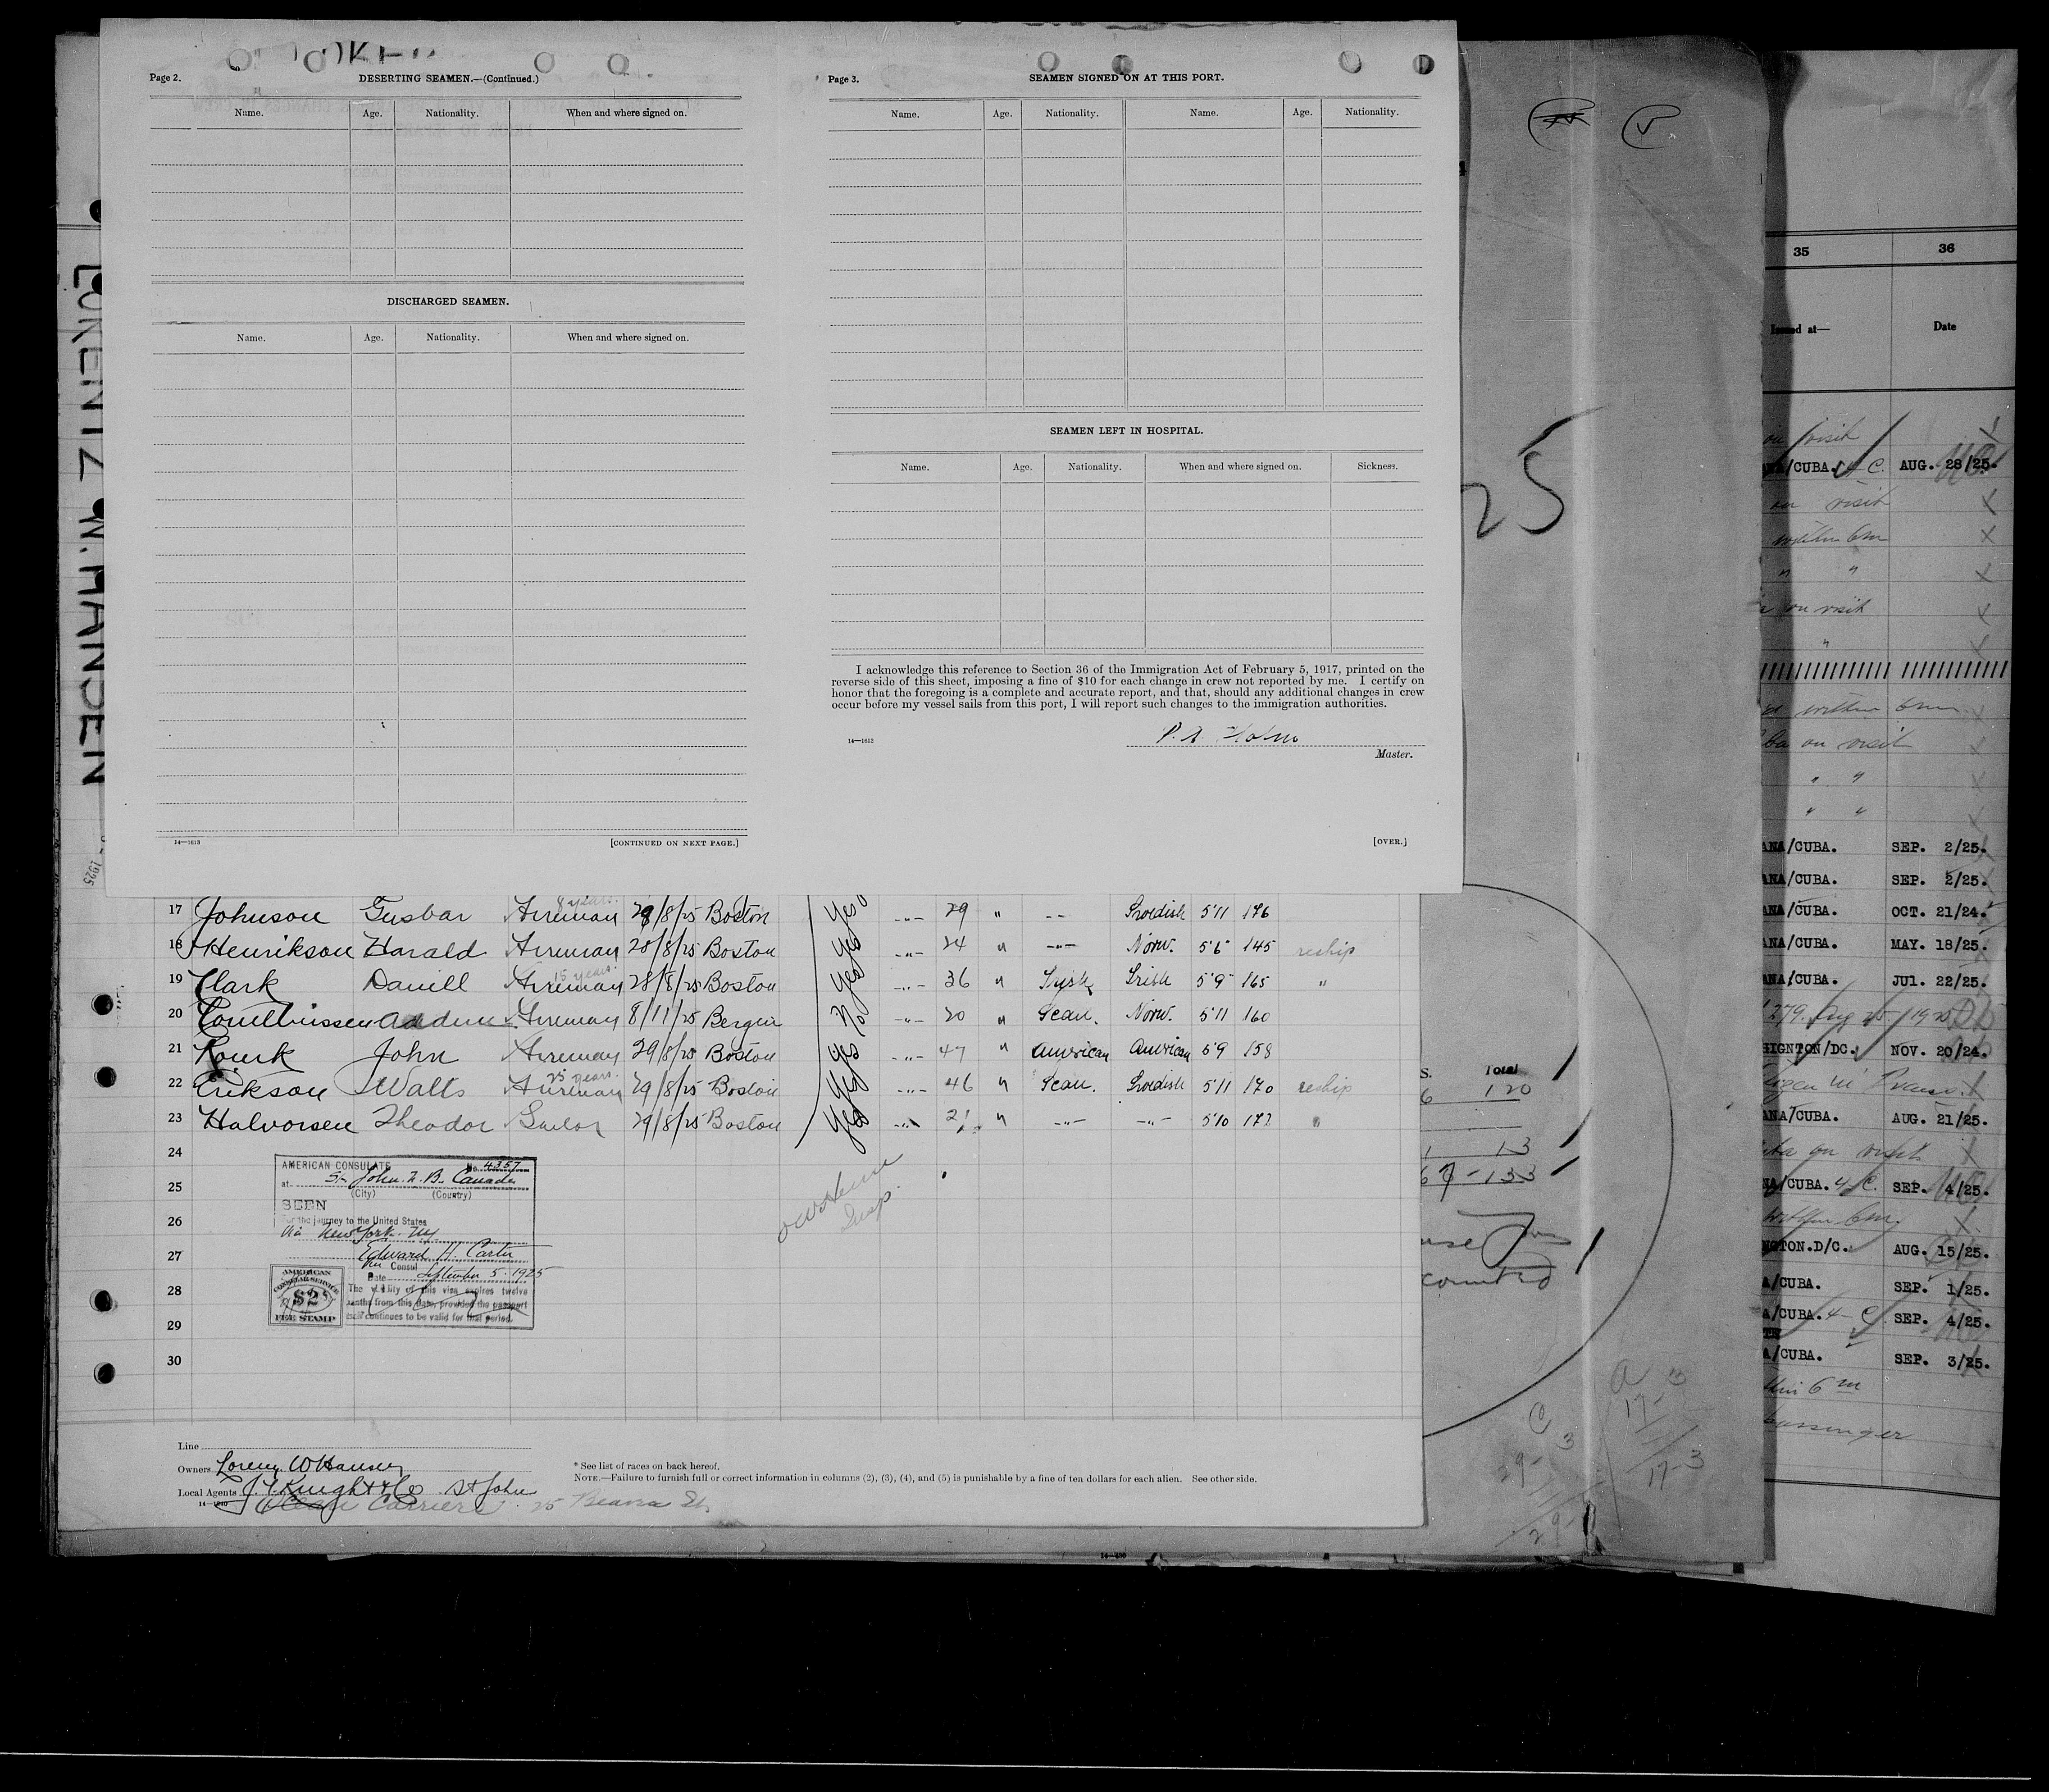 LORENTZ W. HANSEN
1925
Page 2.
DESERTING SEAMEN.—(Continued.)
Name. Age. Nationality. When and where signed on.
DISCHARGED SEAMEN.
Name. Age. Nationality. When and where signed on.
14—1613
[CONTINUED ON NEXT PAGE.]
Page 3.
SEAMEN SIGNED ON AT THIS PORT.
Name. Age. Nationality. Name. Age. Nationality.
SEAMEN LEFT IN HOSPITAL.
Name. Age. Nationality. When and where signed on. Sickness.
I acknowledge this reference to Section 36 of the Immigration Act of February 5, 1917, printed on the
reverse side of this sheet, imposing a fine of $10 for each change in crew not reported by me. I certify on
honor that the foregoing is a complete and accurate report, and that, should any additional changes in crew
occur before my vessel sails from this port, I will report such changes to the immigration authorities.
14—1613
Holm
Master.
[OVER.]
8 years.
17 Johnson Gusbar Fireman 29/8/25 Boston Yes -"- 29 " -- Swedish 5'11 176
18 Henrikson Harald Fireman 28/8/25 Boston Yes -"- 24 " -"- Norw. 5'6 145 reship
15 years.
19 Clark Daniell Fireman 28/8/25 Boston Yes -"- 36 " Irish Irish 5'9 165 "
20 Fireman 8/11/25 Bergen No -"- 20 " Scan. Norw. 5'11 160
21 Rourk John Fireman 29/8/25 Boston Yes -"- 47 " American American 5'9 158
25 years.
22 Erikson Walts Fireman 29/8/25 Boston Yes -"- 46 " Scan. Swedish 5'11 170 reship
23 Halvorsen Theodor Sailor 29/8/25 Boston Yes -"- 21 " -"- -"- 5'10 172 "
24
25
26
27
28
29
30
AMERICAN CONSULATE No. 4357
at St. John. N. B. Canada
(City) (Country)
SEEN
For the journey to the United States
Via New York. NY
Edward H. Carter
Consul
Date September 5. 1925
The validity of this visa expires twelve
months from this date, provided the passport
itself continues to be valid for that period.
AMERICAN
CONSULAR SERVICE
$2
FEE STAMP
Insp.
Line
Owners Lorenz W Hansen
Local Agents J. T. Knight & Co St John
14—1640
Ocean Carriers 25 Beaver St.
* See list of races on back hereof.
NOTE.—Failure to furnish full or correct information in columns (2), (3), (4), and (5) is punishable by a fine of ten dollars for each alien. See other side.
25
S. Total
6 120
1 13
67 - 133
counted
C 3
29-
29-
a 3
17-
17-3
35 36
Issued at— Date
on visit
/CUBA. 4 C. AUG. 28/25.
on visit
within 6m
" "
on visit
"
within 6m.
on visit
" "
" "
ANA/CUBA. SEP. 2/25.
ANA/CUBA. SEP. 2/25.
ANA/CUBA. OCT. 21/24.
ANA/CUBA. MAY. 18/25.
ANA/CUBA. JUL. 22/25.
279.
HIGNTON/DC. NOV. 20/24.
ANA/CUBA. AUG. 21/25.
on visit
NA/CUBA. 4 C. SEP. 4/25.
within 6m.
NGTON.D/C. AUG. 15/25.
A/CUBA. SEP. 1/25.
A/CUBA. 4 C. SEP. 4/25.
A/CUBA. SEP. 3/25.
6 m
passenger